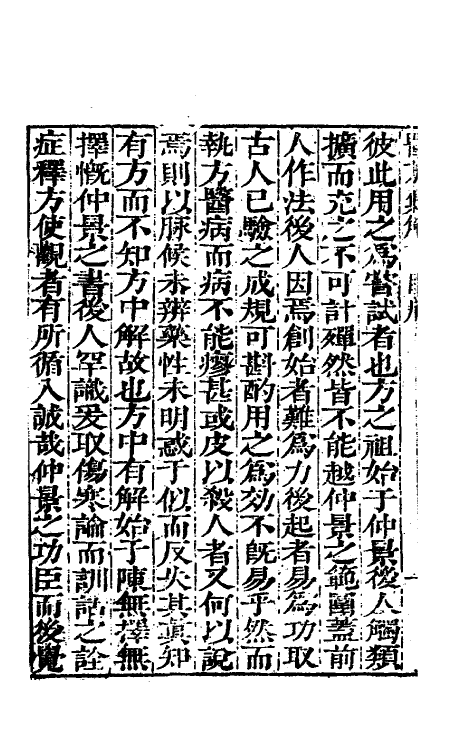 彼此用之爲嘗試者也方之祖始于仲景後人觸類
擴而充之不可計殫然皆不能越仲景之範圍蓋前
人作法後人因焉創始者難爲力後起者易爲功取
古人已驗之成規可斟酌用之爲効不旣易乎然而
執方醫病而病不能瘳甚或皮以殺人者又何以說
焉則以脉候未辨藥性未明惑于似而反失其眞知
有方而不知方中解故也方中有解始于陳無擇無
擇慨仲景之書後人罕識爰取傷寒論而訓詁之詮
症釋方使觀者有所循入誠哉仲景之功臣而後覺